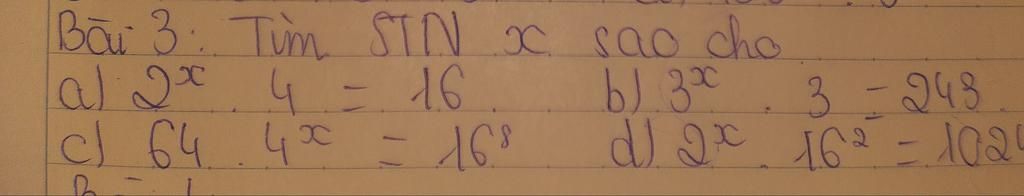 Bài 3: Tìm STN x sao cho
a) 2ˣ . 4 = 16 b) 3ˣ . 3 = 243
c) 64 . 4ˣ = 16⁸ d) 2ˣ . 16² = 1024